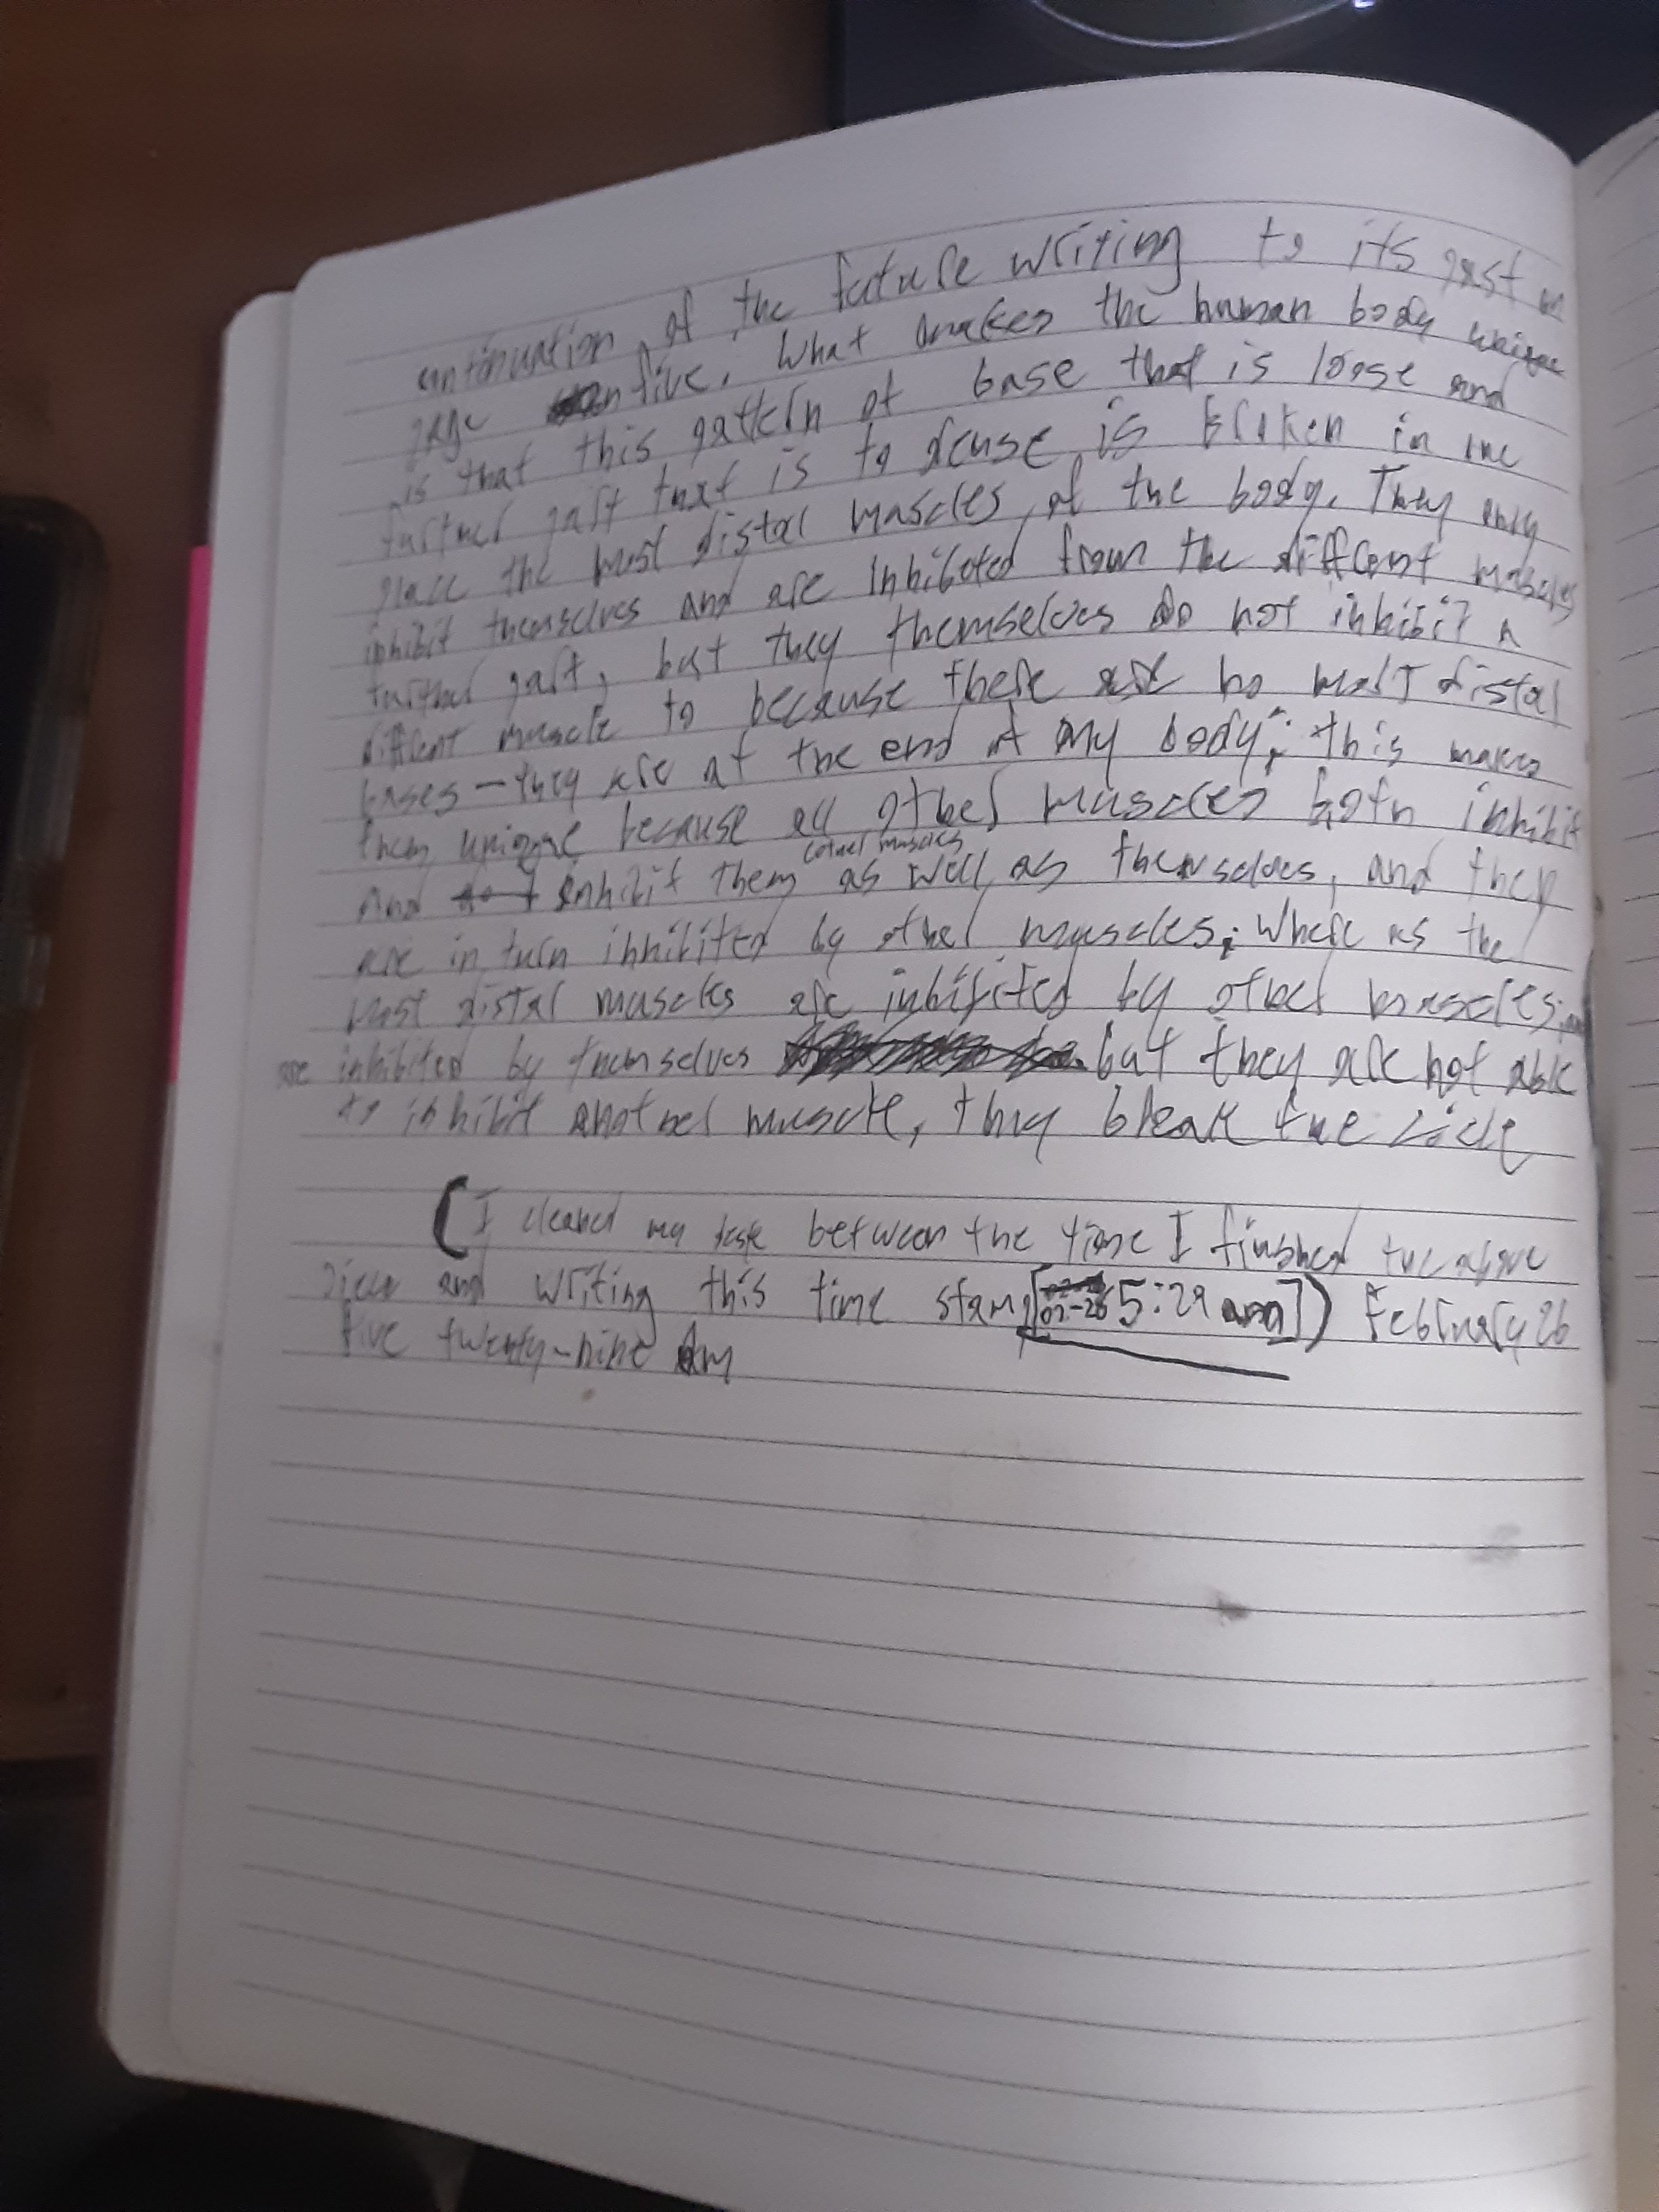 continuation of the future writing to its past on
page five. What makes the human body unique
is that this pattern of base that is loose and
further part that is to is broken in one
place the most distal muscles of the body. They only
inhibit themselves and are inhibited from the different muscles
further part, but they themselves do not inhibit a
different muscle to because there are no most distal
bases – they are at the end of my body; this makes
them unique because all other muscles both inhibit
and inhibit them (other muscles) as well as themselves, and they
are in turn inhibited by other muscles; where as the
most distal muscles are inhibited by other muscles, and
are inhibited by themselves but they are not able
to inhibit another muscle, they break the cicle
(I cleaned my desk between the time I finished the above
piece and writing this time stamp [02-26 5:29 am]) February 26
five twenty-nine Am